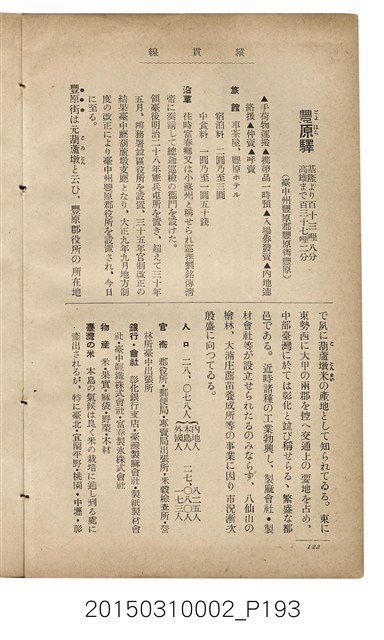 縱貫線
豐原驛
とよはら
基隆より百十三哩八分
高雄まで百三十七哩二分
(臺中州豐原郡豐原街豐原)
▲手荷物運搬▲携帶品一時預▲入場券發賣▲內地連
絡扱▲仲賣▲呼賣
旅館 車茶屋、豐原ホテル
宿泊料 二圓乃至三圓
中食料 一圓乃至一圓五十錢
沿革 往時富春鄉又は小蘇州と稱せられ巡撫劉銘傳清
帝に奏請して總爺巡檢の衙門を設けた。
領臺後明治二十八年憲兵屯所を置き、超えて三十年
五月、辨務署並區役所を設置、三十五年官制改正の
結果臺中廳葫蘆墩支廳となり、大正九年九月地方制
度の改正により臺中州豐原郡役所を設置され、今日
に至る。
豐原街は元葫蘆墩と云ひ、豐原郡役所の所在地
で夙に葫蘆墩米の產地として知られてゐる。東に
東勢西に大甲の兩郡を控へ交通上の要地を占め、
中部臺灣に於ては彰化と竝び稱せらるゝ繁盛な都
邑である。近時諸種の工業勃興し、製麻會社・製
材會社等が設立せられたるのみならず、八仙山の
檜林、大湳庄蔗苗養成所等の事業に因り市況漸次
殷盛に向つてゐる。
人口 二八、〇七八人
內地人 八二五人
本島人 二七、〇八〇人
外國人 一七三人
官衙 郡役所・郵便局・專賣局出張所・米穀檢查所・營
林所臺中出張所
銀行・會社 彰化銀行支店・臺灣製麻會社・製紙製材會
社・臺中輕鐵株式會社・富春製氷株式會社
物產 米・果實・麻袋・野菜・木材
臺灣の米 本島の氣候は良く米の栽培に適し到る處に
產出されるが、特に臺北・宜蘭平野・桃園・中壢・彰
122
20150310002_P193